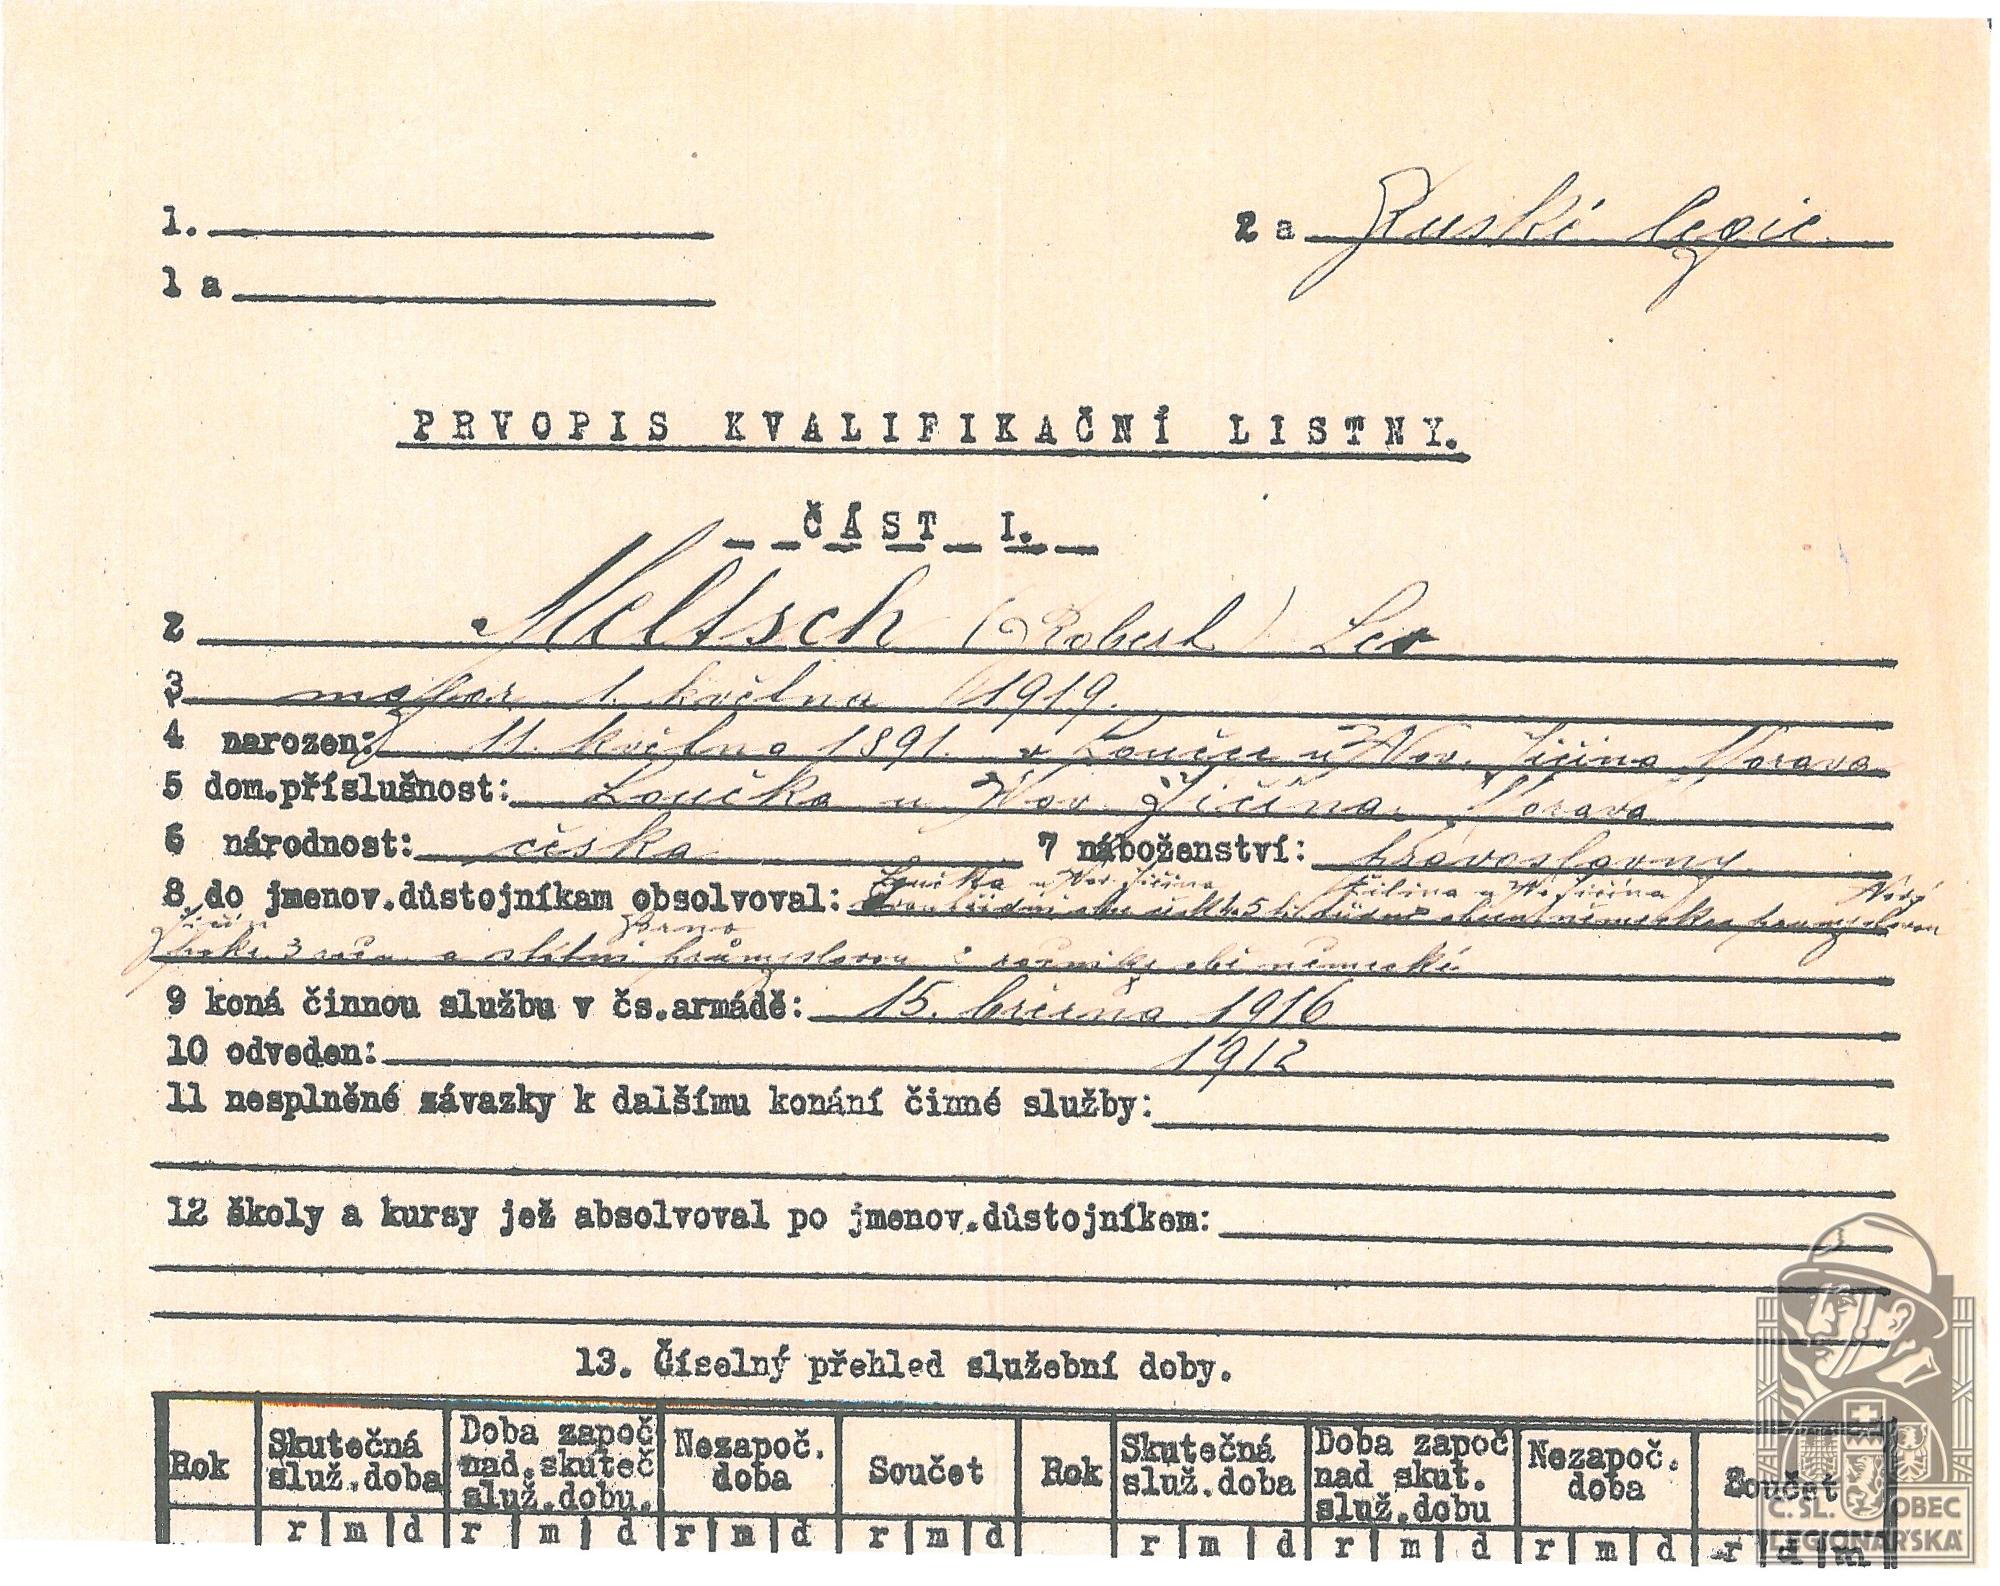 1.
2 a Ruské legie.
1 a
PRVOPIS KVALIFIKAČNÍ LISTNY.
ČÁST I.
2 Meltsch (Robert) Lev
3 major 1. května 1919.
4 narozen: 11. května 1891. v Loučce u Nov. Jičína Morava
5 dom.příslušnost: Loučka u Nov. Jičína. Morava
6 národnost: česka 7 náboženství: pravoslavny
Loučka u Nov. Jičína Nový
8 do jmenov.důstojníkam obsolvoval:
Jičín Brno
3 a státní průmyslovou ročníky obě německé
9 koná činnou službu v čs.armádě: 15. března 1916
10 odveden: 1912
11 nesplněné závazky k dalšímu konání činné služby:
12 školy a kursy jež absolvoval po jmenov.důstojníkem:
13. Číselný přehled služební doby.
Rok Skutečná služ.doba Doba započ nad.skuteč služ.dobu. Nezapoč. doba Součet Rok Skutečná služ.doba Doba započ nad skut. služ.dobu Nezapoč. doba Součet
r m d r m d r m d r m d r m d r m d r m d r d m
Č. SL. OBEC
LEGIONÁŘSKÁ